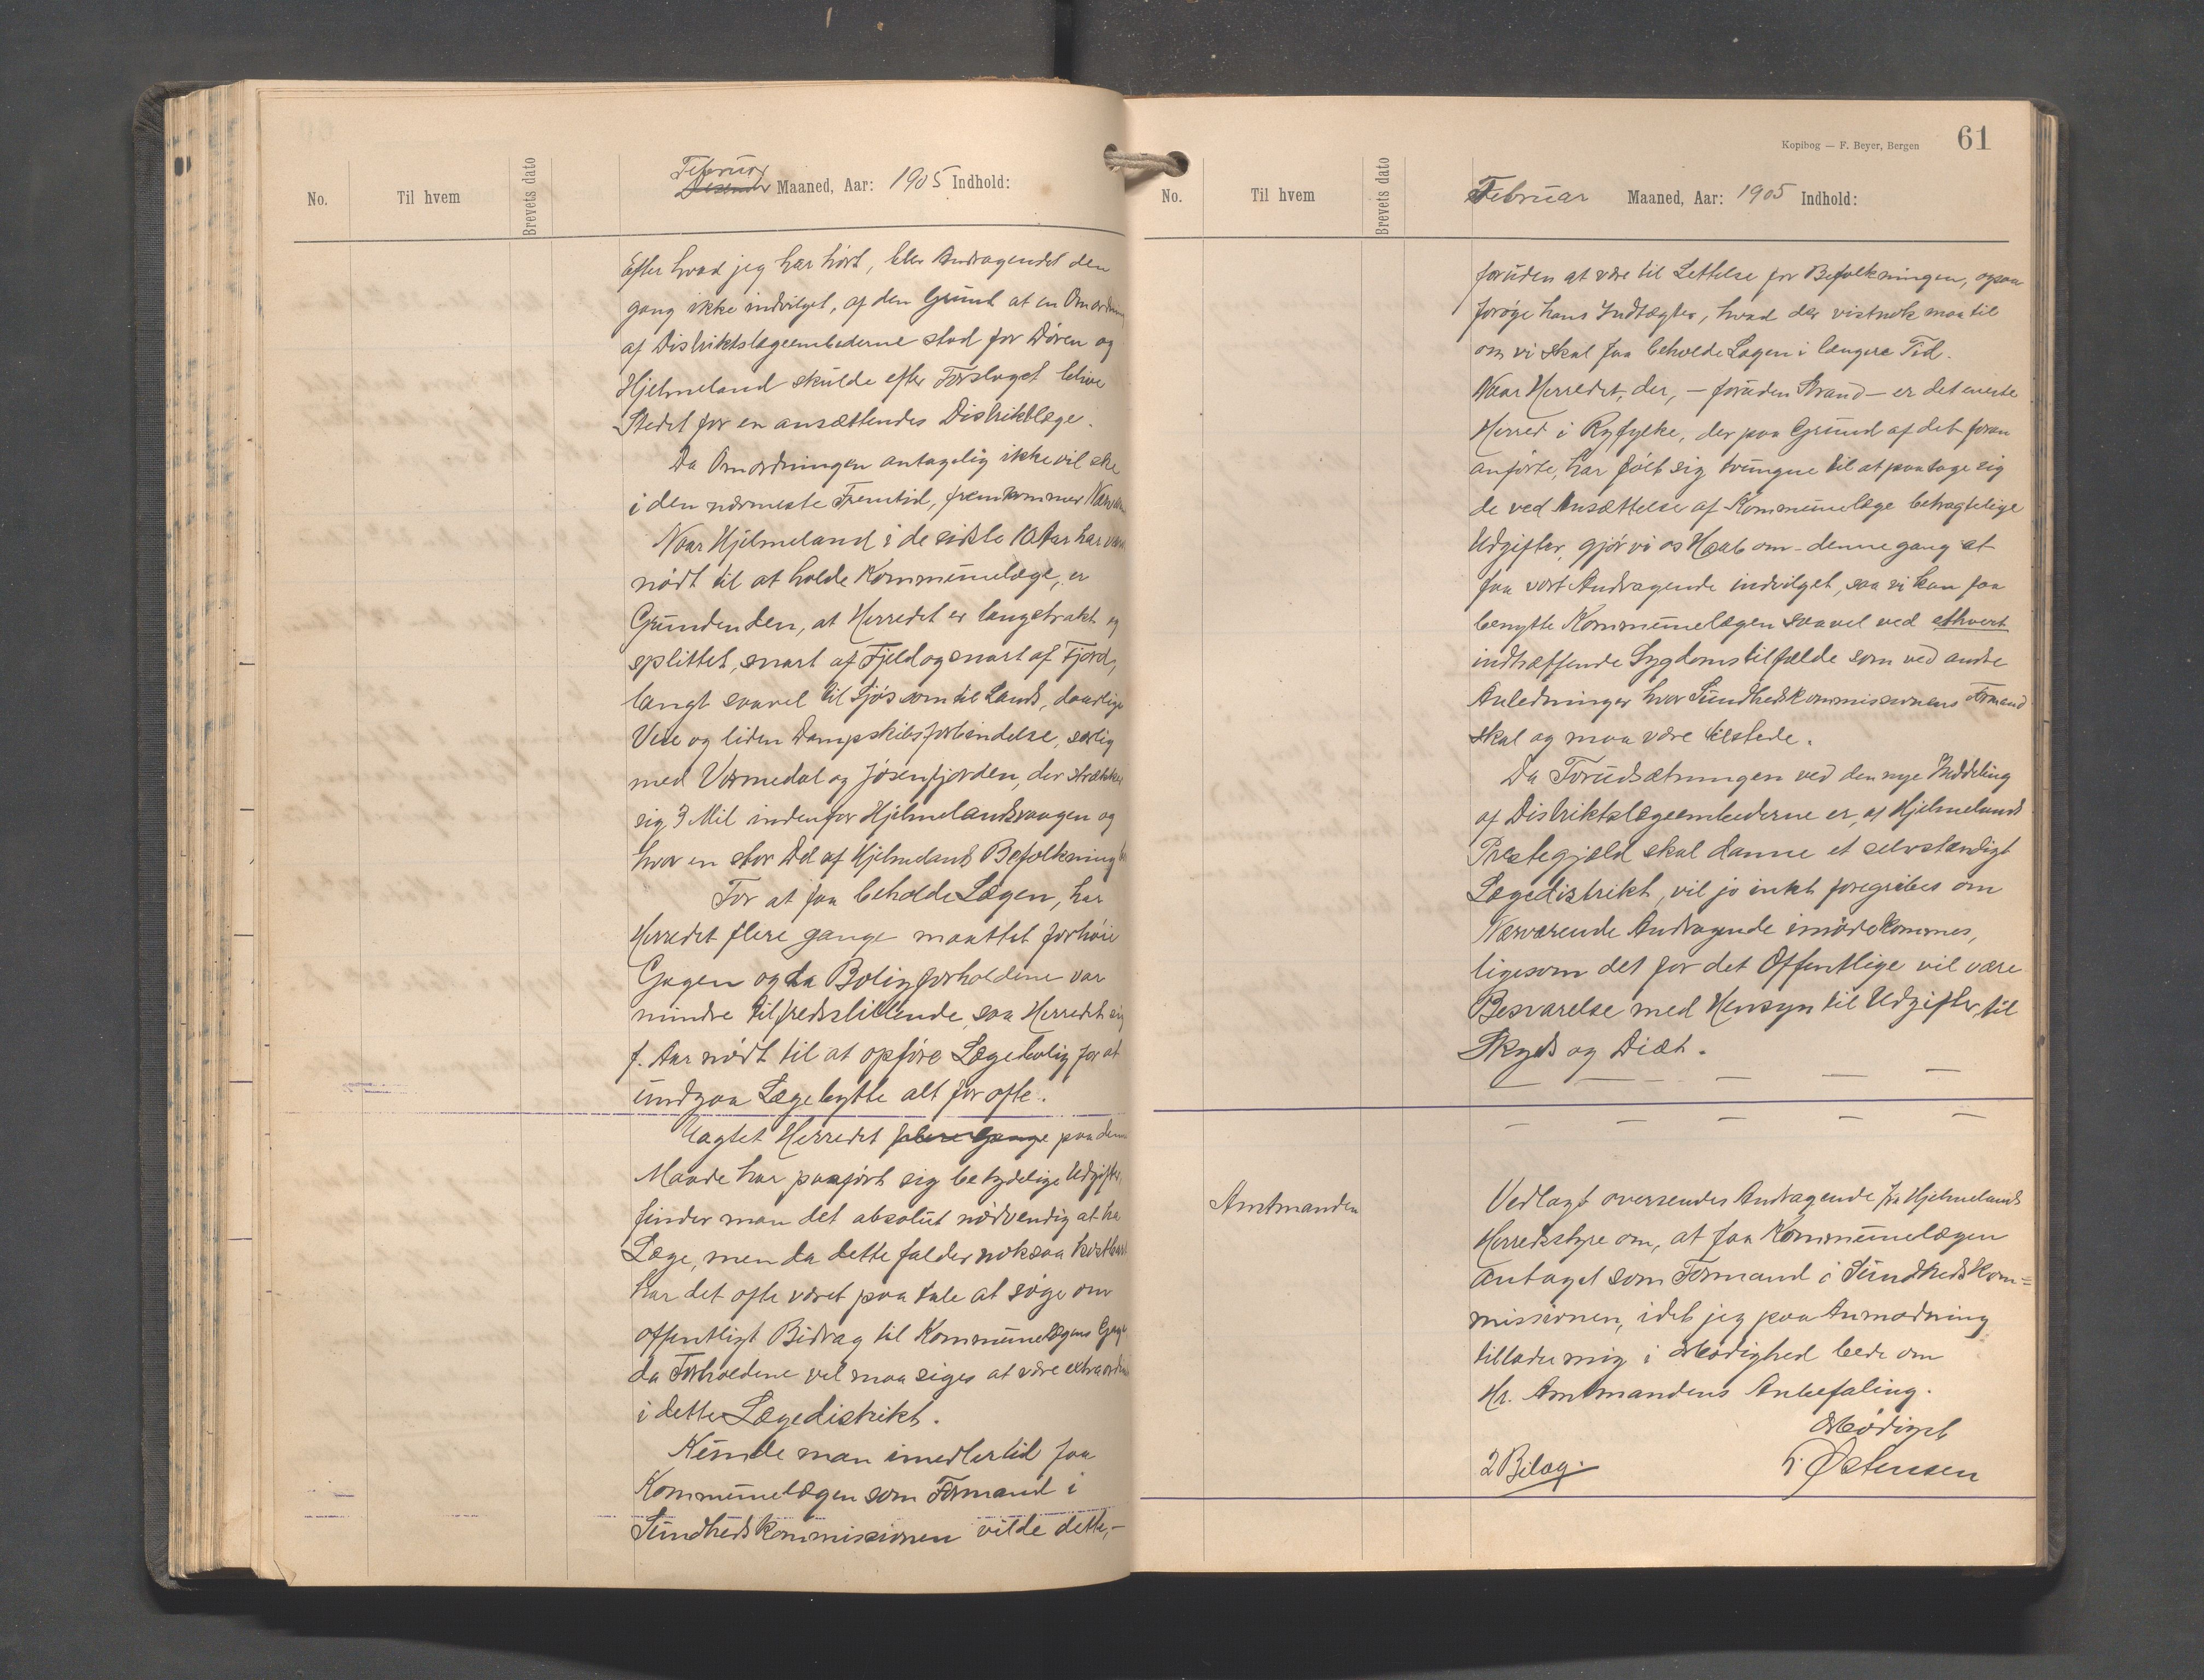 No.
Til hvem
Brevets dato
Februar
Desember Maaned, Aar: 1905 Indhold:
Efter hvad jeg har hørt, blev Andragendet den
gang ikke indvilget, af den Grund at en Omordning
af Distriktslægeembederne stod for Døren og
Hjelmeland skulde efter Forslaget blive
Stedet for en ansættendes Distriktlæge.
Da Omordningen antagelig ikke vil ske
i den nærmeste Fremtid, fremkommer
Naar Hjelmeland i de sidste 10 Aar har
nødt til at holde Kommunelæge, er
Grunden den, at Herredet er langstrakt og
splittet, snart af Fjeld og snart af Fjord,
langt saavel til Sjøs som til Lands, daarlige
Veie og liden Dampskibsforbindelse, særlig
med Vormedal og Jøsenfjorden, der strækker
sig 3 Mil indenfor Hjelmelandsvaagen og
hvor en stor Del af Hjelmelands Befolkning
For at faa beholde Lægen, har
Herredet flere gange maattet forhøie
Gagen og da Boligforholdene var
mindre tilfredsstillende, saa Herredet sig
f. Aar nødt til at opføre Lægebolig for at
undgaa Lægebytte alt for ofte.
Uagtet Herredet flere Gange paa denne
Maade har paaført sig betydelige Udgifter,
finder man det absolut nødvendig at ha
Læge, men da dette falder noksaa kostbart
har det ofte været paa tale at søge om
offentligt Bidrag til Kommunelægens Gage
da Forholdene vel maa siges at være
i dette Lægedistrikt.
Kunde man imedlertid faa
Kommunelægen som Formand i
Sundhedskommissionen vilde dette,-
Kopibog — F. Beyer, Bergen
61
No.
Til hvem
Brevets dato
Februar Maaned, Aar: 1905 Indhold:
foruden at være til Lettelse for Befolkningen, ogsaa
forøge hans Indtægter, hvad der vistnok maa til
om vi skal faa beholde Lægen i længere Tid.
Naar Herredet, der, - foruden Strand - er det eneste
Herred i Ryfylke, der paa Grund af det foran
anførte, har følt sig tvungne til at paatage sig
de ved Ansættelse af Kommunelæge betragtelige
Udgifter, gjør vi os Haab om denne gang at
faa vort Andragende indvilget, saa vi kan faa
benytte Kommunelægen saavel ved ethvert
indtræffende Sygdomstilfælde som ved andre
Anledninger hvor Sundhedskommissionens Formand
skal og maa være tilstede.
Da Forudsætningen ved den nye Inddeling
af Distriktslægeembederne er, at Hjelmelands
Præstegjæld skal danne et selvstændigt
Lægedistrikt, vil jo inkt foregribes om
Nærværende Andragende imødekommes,
ligesom det for det Offentlige vil være
Besvarelse med Hensyn til Udgifter til
Skyds og Diæt.
Amtmanden
Vedlagt oversendes Andragende fra Hjelmelands
Herredsstyre om, at faa Kommunelægen
antaget som Formand i Sundhedskom=
missionen, idet jeg paa Anmodning
tillader mig i Ærbødighed bede om
Hr. Amtmandens Anbefaling.
Ærbødigst
2 Bilag. Østensen